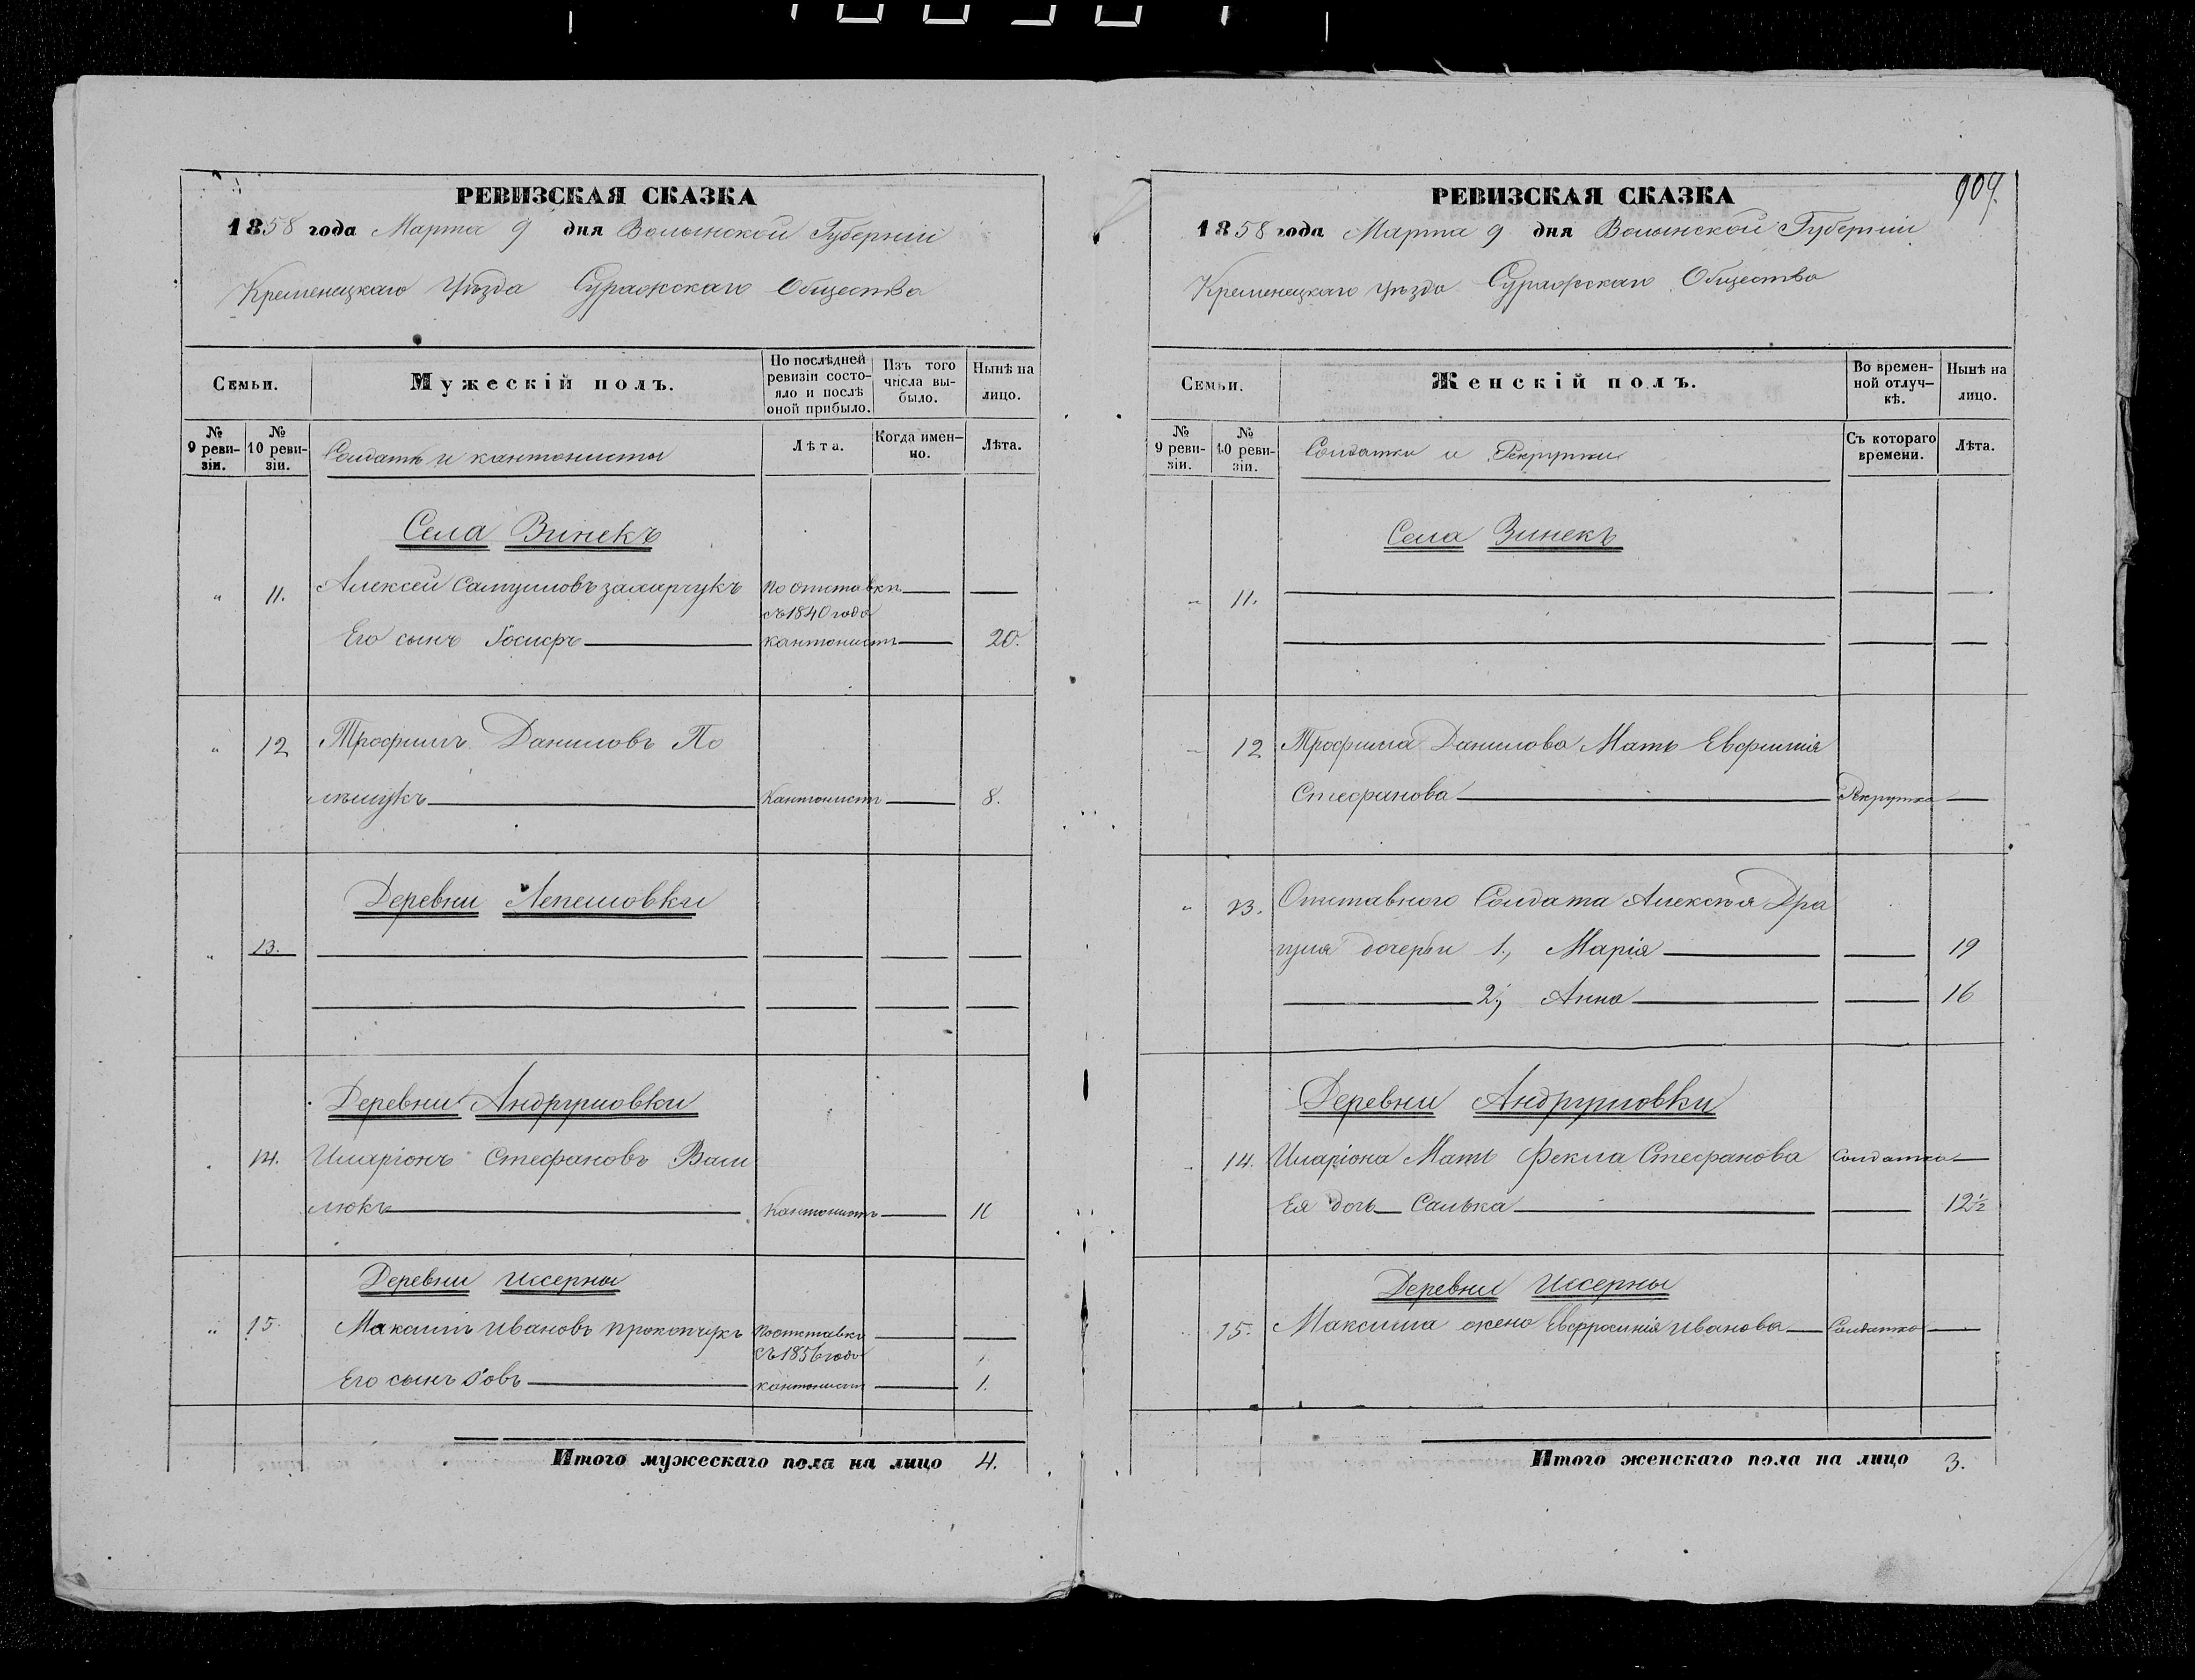 РЕВИЗСКАЯ СКАЗКА
1858 года Марта 9 дня Волынской Губерніи
Кременецкаго Уѣзда Суражскаго Общества
Семьи.
Мужескій полъ.
По послѣдней ревизіи состояло и послѣ оной прибыло.
Изъ того числа выбыло.
Нынѣ на лицо.
№ 9 ревизіи.
№ 10 ревизіи.
Солдаты и кантонисты
Лѣта.
Когда именно.
Лѣта.
Села Зинекъ
" 11. Алексей Самуиловъ захарчукъ по отставки — —
съ 1840 года
Его сынъ Іосифъ — кантонистъ — 20.
" 12 Трофимъ Даниловъ По
лѣщукъ — Кантонистъ — 8.
Деревни Лепешовки
" 13. — — — —
— — — —
Деревни Андрушовки
14. Иларіонъ Стефановъ Вали
люкъ — Кантонистъ — 11
Деревни Иссерны
" 15 Максимъ Ивановъ прокопчукъ по отставки — —
съ 1856 года
Его сынъ Іовъ — кантонистъ — 1.
Итого мужескаго пола на лицо 4.
РЕВИЗСКАЯ СКАЗКА
909.
1858 года Марта 9 дня Волынской Губерніи
Кременецкаго уѣзда Суражскаго Общества
Семьи.
Женскій полъ.
Во временной отлучкѣ.
Нынѣ на лицо.
№ 9 ревизіи.
№ 10 ревизіи.
Солдатки и Рекрутки
Съ котораго времени.
Лѣта.
Села Зинекъ
" 11. — — —
— — —
12 Трофима Данилова Мать Евфимія
Стефанова — Рекрутка —
" 13. Отставного Солдата Алексѣя Дра
гуля дочерьи 1., Марія — — 19
— 2., Анна — — 16
Деревни Андрушовки
14. Иларіона Мать Фекла Стефанова Солдатка —
Ея дочь — Салька — — 12½
Деревни Иссерны
15. Максима жена Евфросинія Иванова — Солдатка —
Итого женскаго пола на лицо 3.